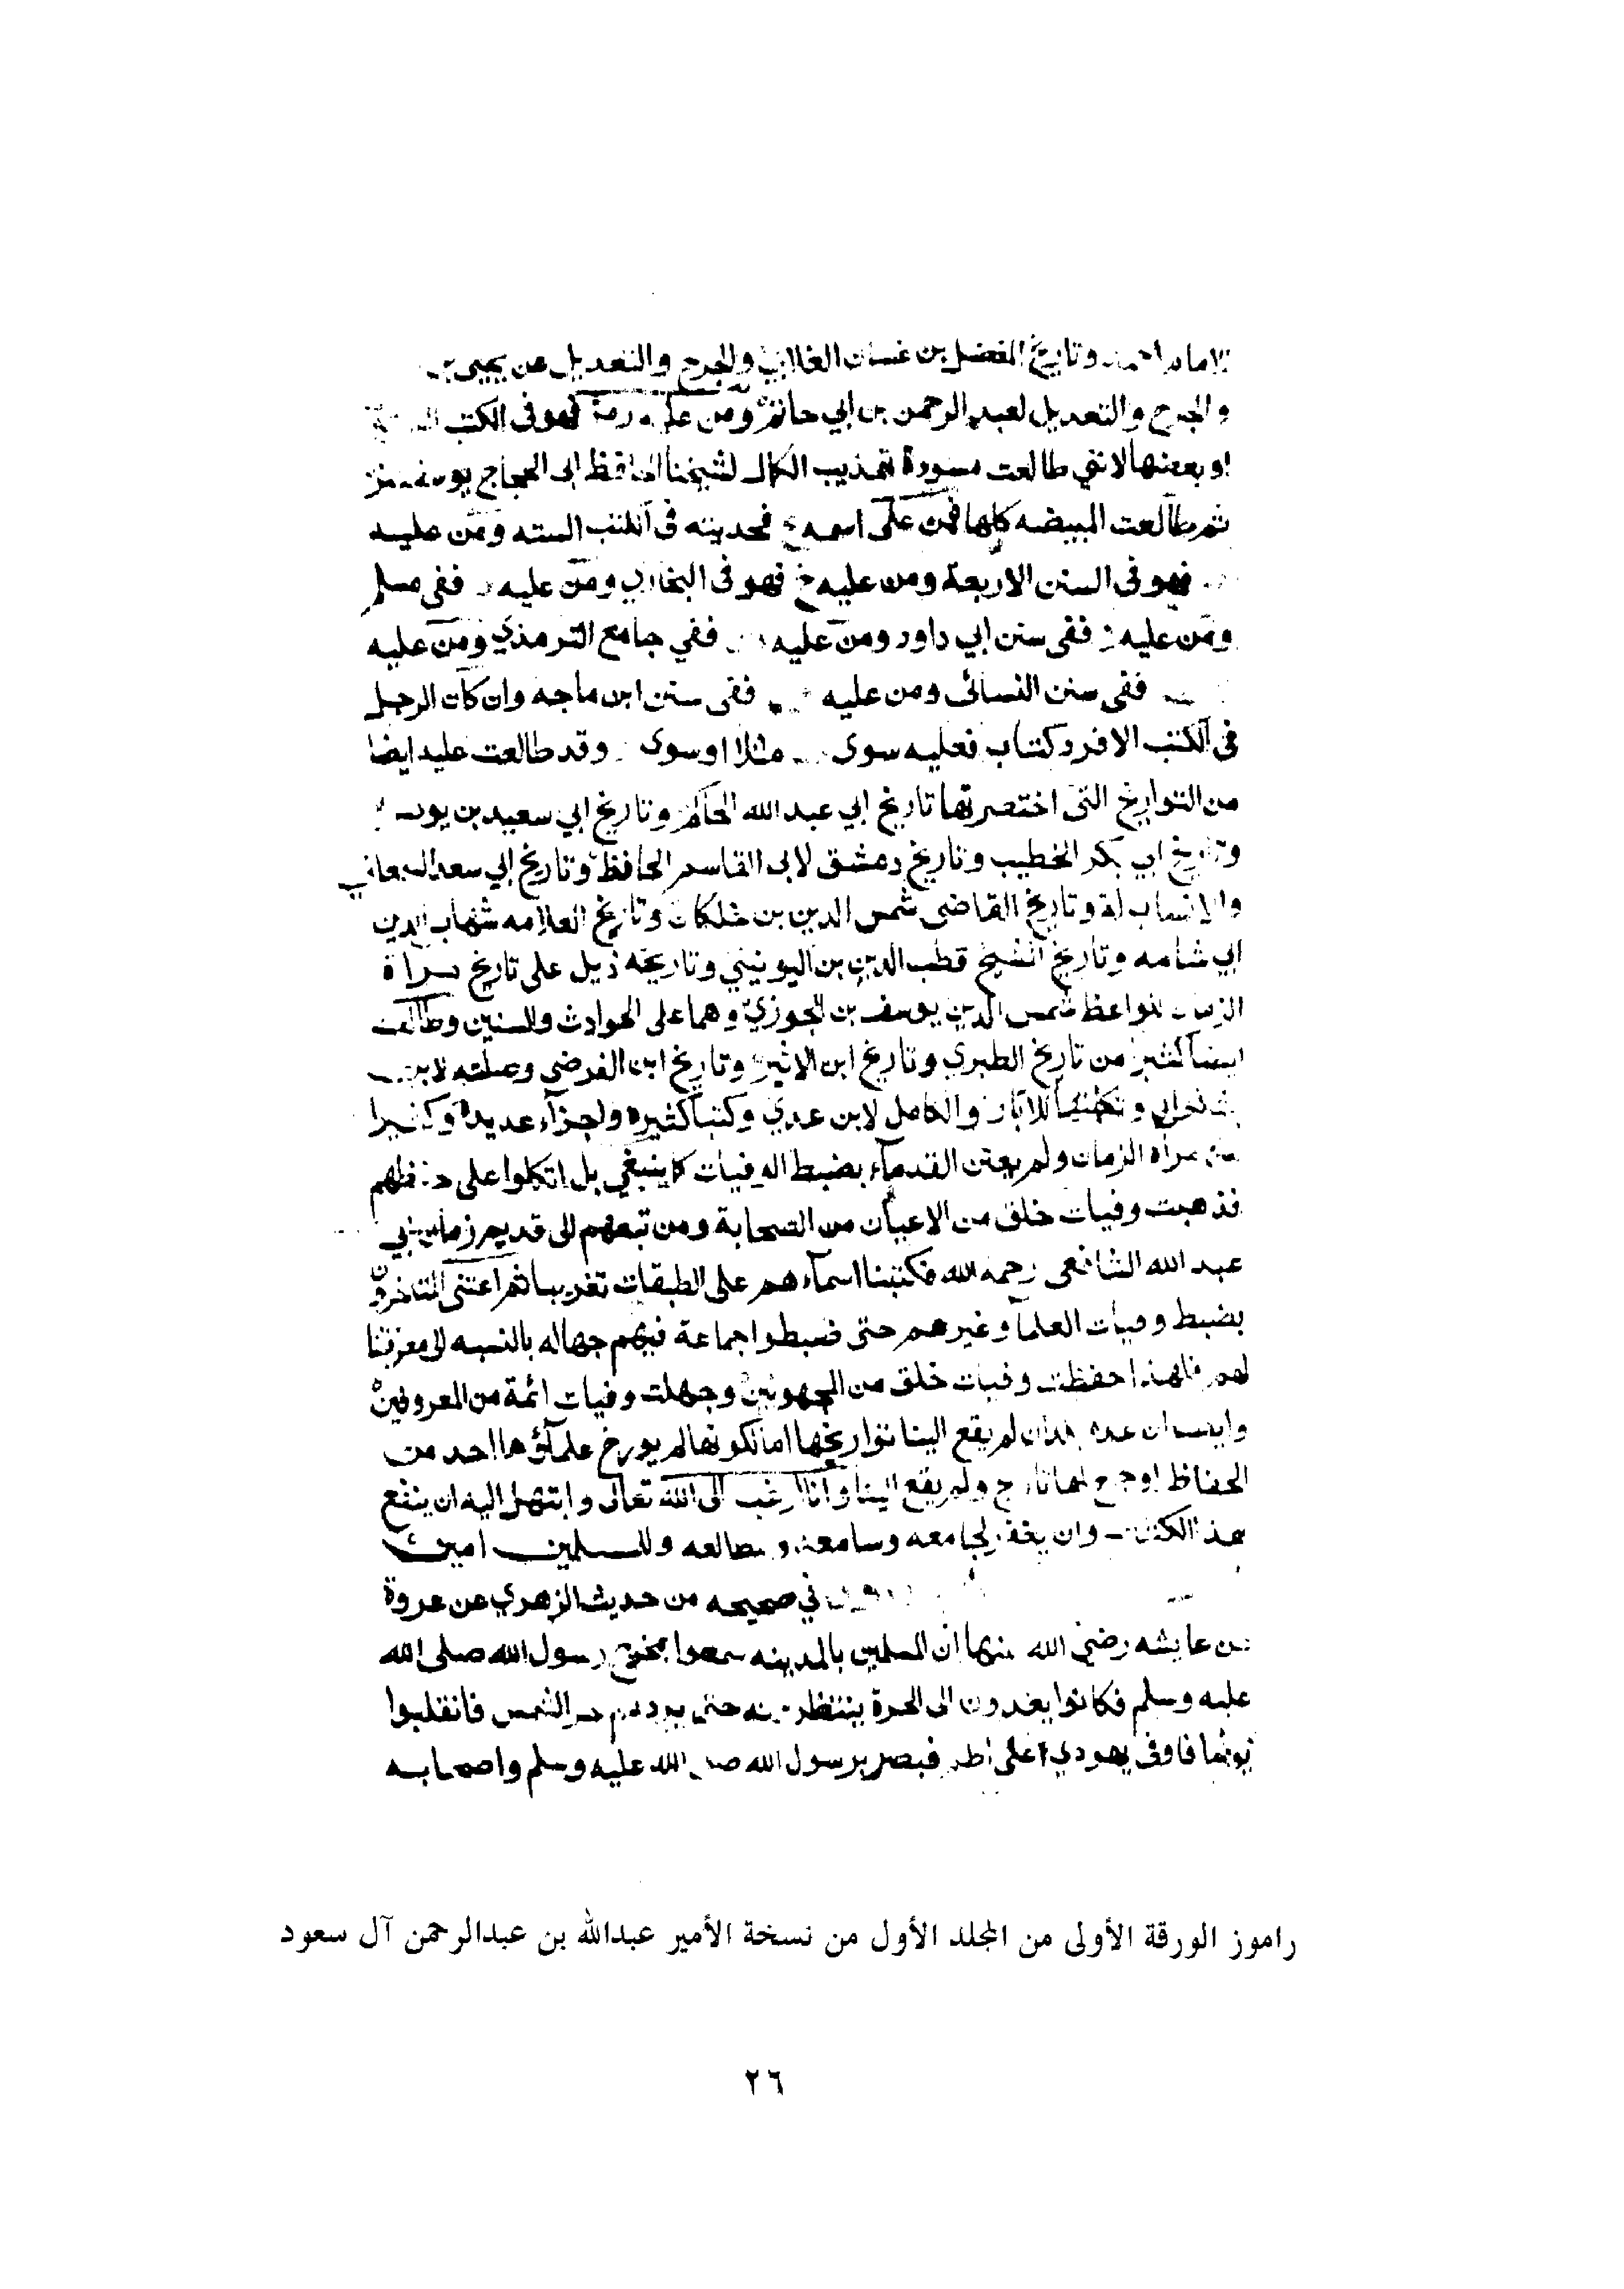 الامام احمد وتاريخ المفضل بن غسان الغلابي والجرح والتعديل عن يحيى بن
والجرح والتعديل لعبد الرحمن بن ابي حاتم ومن عليه رمز فهو في الكتب
او بعضها لانني طالعت مسودة تهذيب الكمال لشيخنا الحافظ ابى الحجاج يوسف
ثم طالعت المبيضه كلها فمن على اسمه ع فحديثه في الكتب السته ومن عليه
فهو فى السنن الاربعة ومن عليه خ فهو فى البخاري ومن عليه ففى مسلم
ومن عليه د ففى سنن ابي داود ومن عليه ففي جامع الترمذي ومن عليه
ففى سنن النسائى ومن عليه ففى سنن ابن ماجه وان كان الرجل
فى الكتب الا فرد كتاب فعليه سوى مثلا او سوى وقد طالعت عليه ايضا
من التواريخ التى اختصرتها تاريخ ابي عبد الله الحاكم وتاريخ ابي سعيد بن يونس
وتاريخ ابي بكر الخطيب وتاريخ دمشق لابى القاسم الحافظ وتاريخ ابي سعد السمعاني
والانساب له وتاريخ القاضى شمس الدين بن خلكان وتاريخ العلامه شهاب الدين
ابي شامه وتاريخ الشيخ قطب الدين بن اليونيني وتاريخه ذيل على تاريخ مراة
الزمان للواعظ شمس الدين يوسف بن الجوزي وهما على الحوادث والسنين وطالعت
ايضا كثيرا من تاريخ الطبري وتاريخ ابن الاثير وتاريخ ابن الفرضى وصلته لابن
بشكوال وتكملتها للابار والكامل لابن عدي وكتبا كثيره واجزاء عديدة وكثيرا
من مراه الزمان ولم يعتن القدماء بضبط الوفيات كما ينبغي بل اتكلوا على حفظهم
فذهبت وفيات خلق من الاعيان من الصحابة ومن تبعهم الى قديم زمان ابي
عبد الله الشافعى رحمه الله فكتبنا اسماءهم على الطبقات تقريبا ثم اعتنى المتاخرون
بضبط وفيات العلما وغيرهم حتى ضبطوا جماعة فيهم جهاله بالنسبه الى معرفتنا
لهم فلهذا حفظت وفيات خلق من المجهولين وجهلت وفيات ائمة من المعروفين
وايضا ان عده بلدان لم يقع الينا تواريخها اما لكونها لم يورخ علماؤها احد من
الحفاظ او جمع لها تاريخ ولم يقع الينا وانا ارغب الى الله تعالى وابتهل اليه ان ينفع
بهذا الكتاب وان يغفر لجامعه وسامعه ومطالعه وللمسلمين امين
في صحيحه من حديث الزهري عن عروة
عن عايشه رضي الله عنها ان المسلمين بالمدينه سمعوا بمخرج رسول الله صلى الله
عليه وسلم فكانوا يغدون الى الحرة ينتظرونه حتى يردهم حر الشمس فانقلبوا
يوما فاوفى يهودي على اطم فبصر برسول الله صلى الله عليه وسلم واصحابه
راموز الورقة الأولى من المجلد الأول من نسخة الأمير عبدالله بن عبدالرحمن آل سعود
٢٦